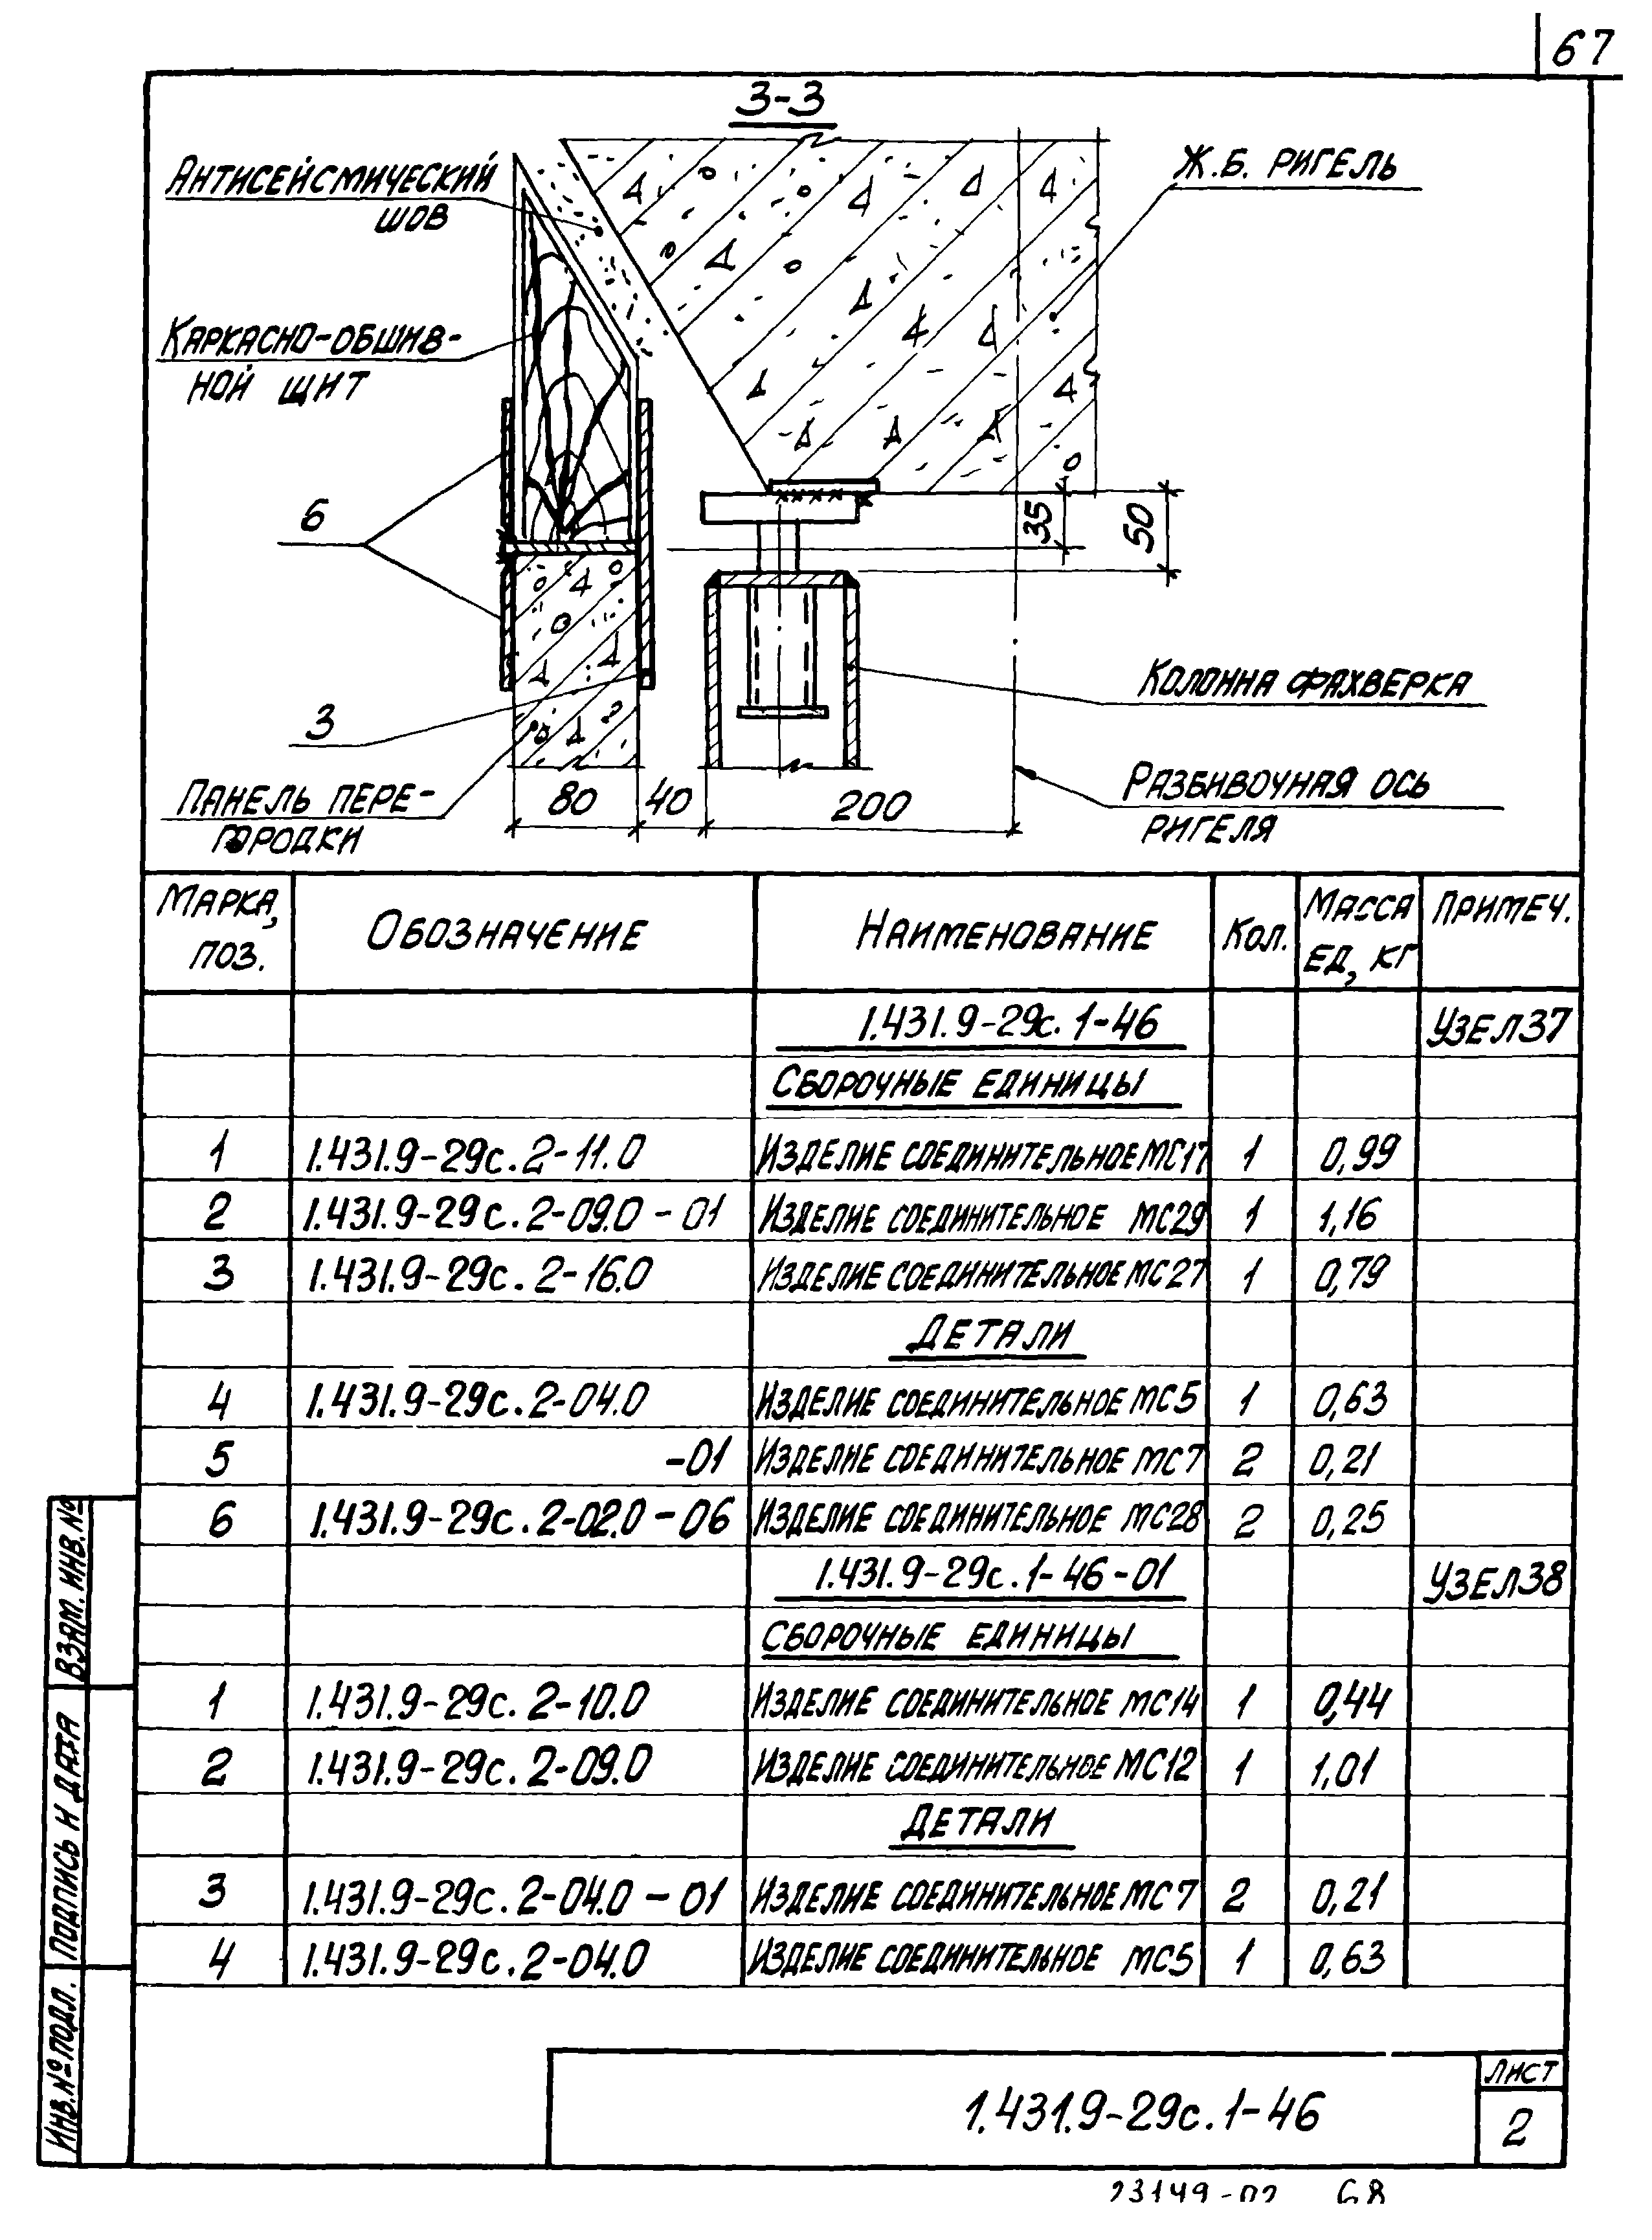 67
3-3
Антисейсмический
шов
Ж.Б. ригель
Каркасно-обшив-
ной щит
6
35
50
3
Колонна фахверка
Панель пере-
городки
80
40
200
Разбивочная ось
ригеля
Марка, поз. Обозначение Наименование Кол. Масса ед, кг Примеч.
1.431.9-29с.1-46 Узел 37
Сборочные единицы
1 1.431.9-29с.2-11.0 Изделие соединительное МС17 1 0,99
2 1.431.9-29с.2-09.0-01 Изделие соединительное МС29 1 1,16
3 1.431.9-29с.2-16.0 Изделие соединительное МС27 1 0,79
Детали
4 1.431.9-29с.2-04.0 Изделие соединительное МС5 1 0,63
5 -01 Изделие соединительное МС7 2 0,21
6 1.431.9-29с.2-02.0-06 Изделие соединительное МС28 2 0,25
1.431.9-29с.1-46-01 Узел 38
Сборочные единицы
1 1.431.9-29с.2-10.0 Изделие соединительное МС14 1 0,44
2 1.431.9-29с.2-09.0 Изделие соединительное МС12 1 1,01
Детали
3 1.431.9-29с.2-04.0-01 Изделие соединительное МС7 2 0,21
4 1.431.9-29с.2-04.0 Изделие соединительное МС5 1 0,63
Взам. инв. №
Подпись и дата
Инв. № подл.
1.431.9-29с.1-46
Лист
2
23149-02 68